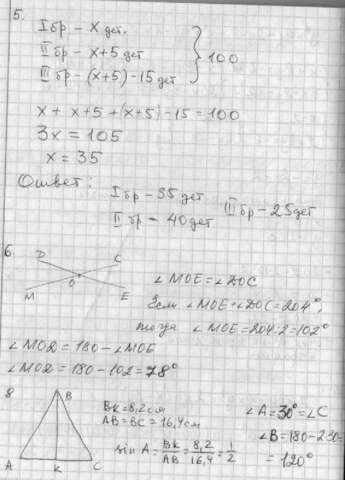 5.
I бр – x дет.
II бр – x+5 дет
III бр – (x+5) – 15 дет
100
x + x+5 + (x+5) – 15 = 100
3x = 105
x = 35
Ответ:
I бр – 35 дет
II бр – 40 дет
III бр – 25 дет
6.
D C
O
M E
∠MOE = ∠DOC
Если ∠MOE + ∠DOC = 204°,
тогда ∠MOE = 204:2 = 102°
∠MOD = 180 – ∠MOE
∠MOD = 180 – 102 = 78°
8
B
A K C
BK = 8,2 см
AB = BC = 16,4 см
sin A = BK/AB = 8,2/16,4 = 1/2
∠A = 30° = ∠C
∠B = 180 – 2·30 =
= 120°